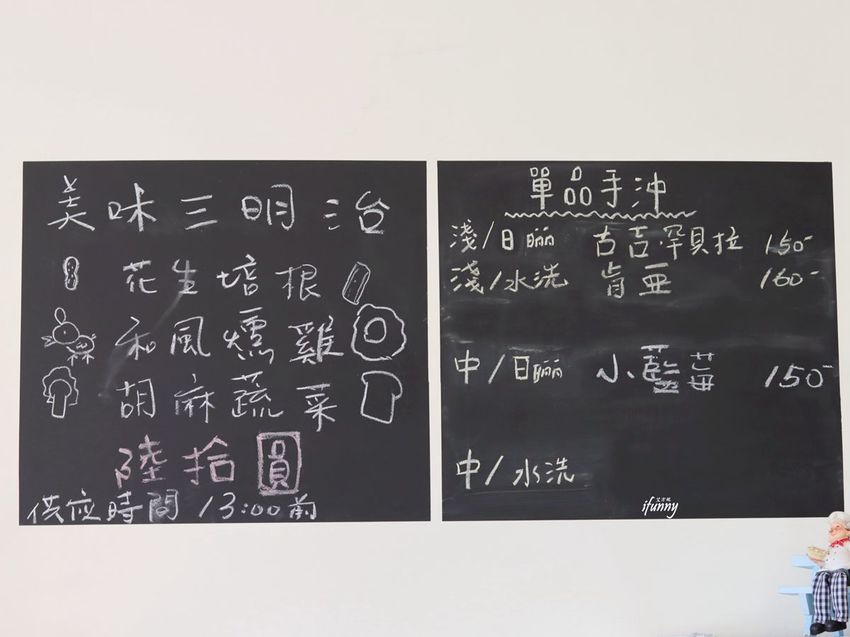 美味三明治
花生培根
和風燻雞
胡麻蔬菜
陸拾圓
供应時間 13:00前
單品手沖
淺/日曬 古吉罕貝拉 150-
淺/水洗 肯亜 160-
中/日曬 小藍莓 150-
中/水洗
艾方妮
ifunny